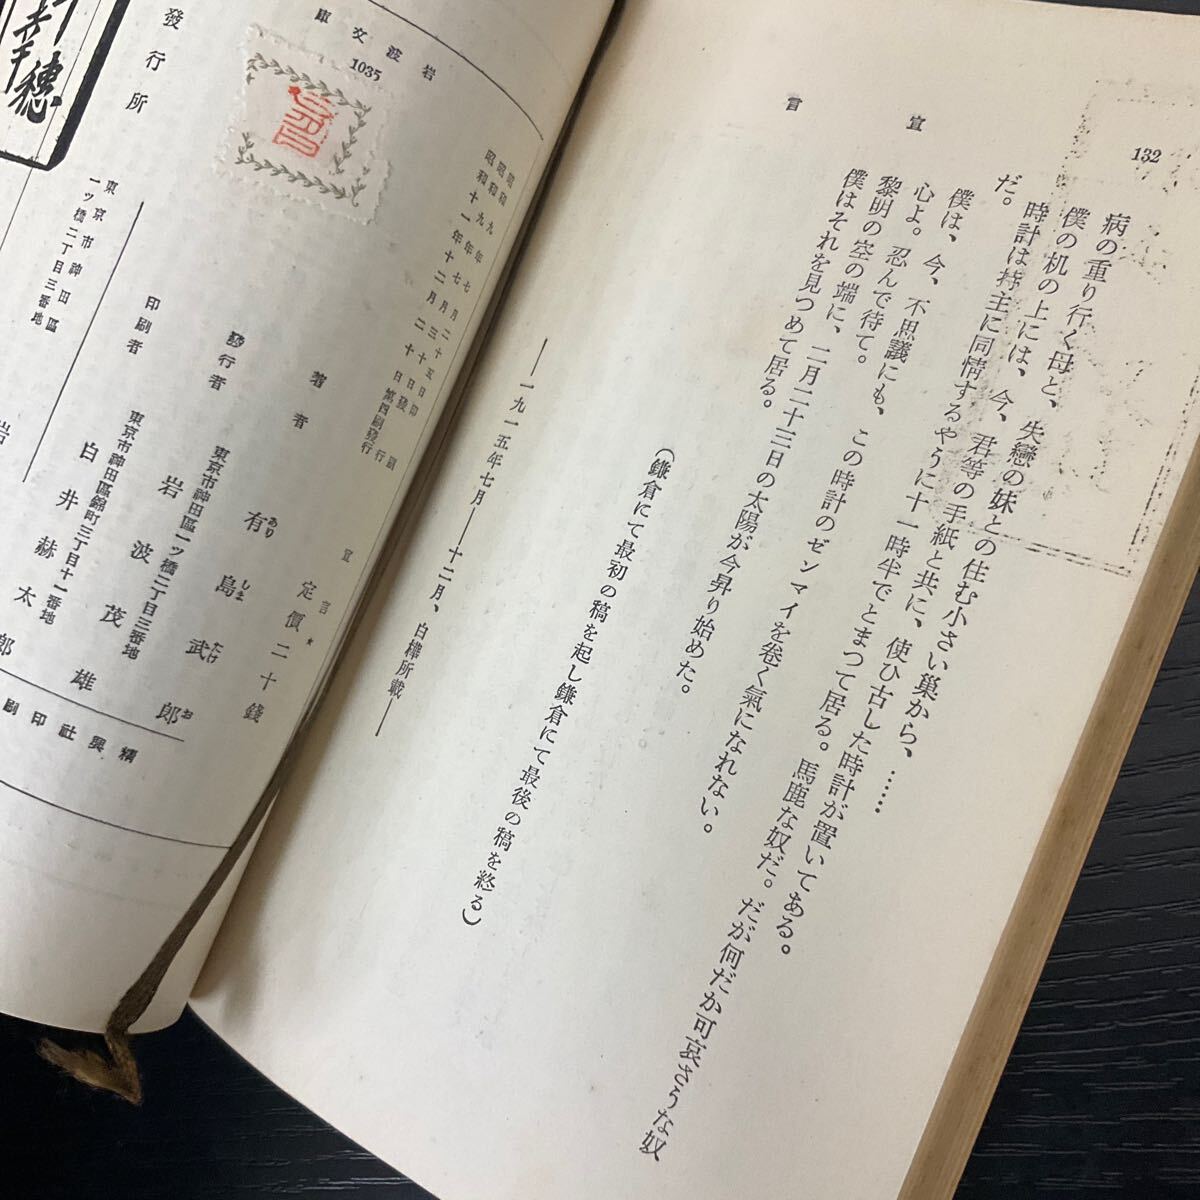 132
宣言
病の重り行く母と、失戀の妹との住む小さい巢から、……
僕の机の上には、今、君等の手紙と共に、使ひ古した時計が置いてある。
時計は持主に同情するやうに十一時半でとまつて居る。馬鹿な奴だ。だが何だか可哀さうな奴
だ。
僕は、今、不思議にも、この時計のゼンマイを卷く氣になれない。
心よ。忍んで待て。
黎明の空の端に、二月二十三日の太陽が今昇り始めた。
僕はそれを見つめて居る。
(鎌倉にて最初の稿を起し鎌倉にて最後の稿を終る)
―一九一五年七月―十二月、白樺所載―
昭和九年七月二十五日印刷
昭和九年七月三十日發行
昭和十一年十二月二十日第四刷發行
宣言★
定價二十錢
著者 有島武郎
あり しま たけ お
發行者 東京市神田區一ツ橋二丁目三番地
岩波茂雄
印刷者 東京市神田區錦町三丁目十一番地
白井赫太郎
岩波文庫
1035
東京市神田區
一ツ橋二丁目三番地
發行所
岩
精興社印刷
穗